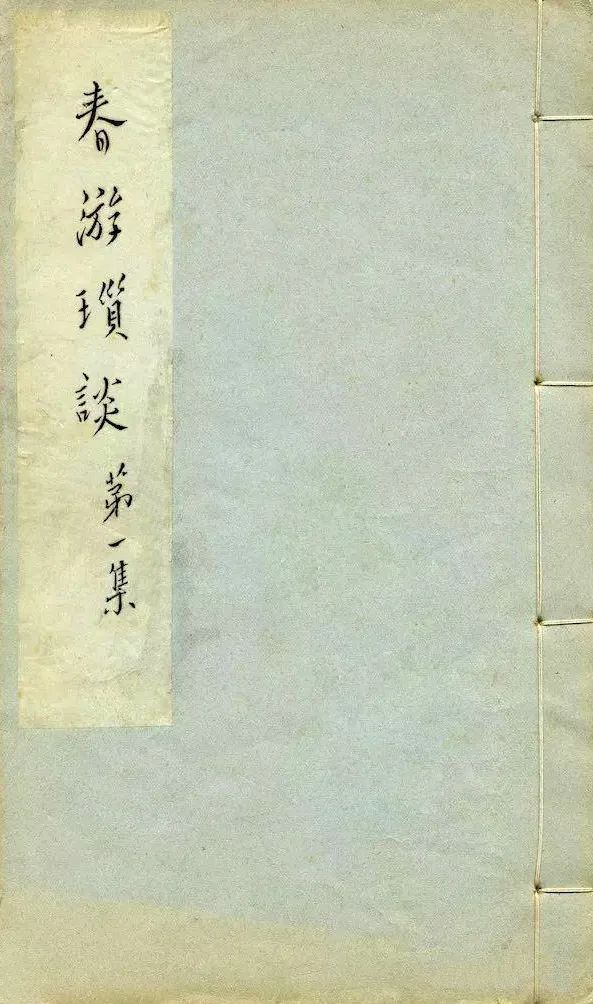 春游瑣談 第一集